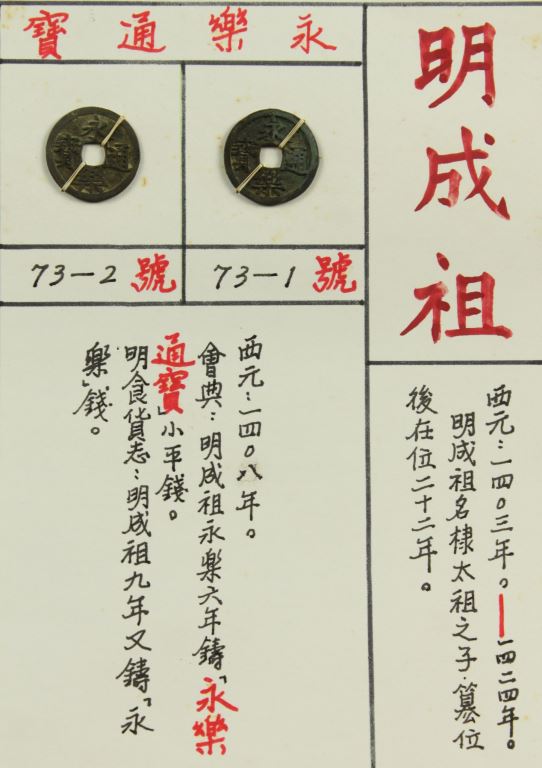 明成祖
西元:一四〇三年。—一四二四年。
明成祖名棣太祖之子.篡位
後在位二十二年。
永樂通寶
永樂通寶
永樂通寶
73-1號
73-2號
西元:一四〇八年。
會典:明成祖永樂六年鑄「永樂
通寶」小平錢。
明食貨志:明成祖九年又鑄「永
樂」錢。